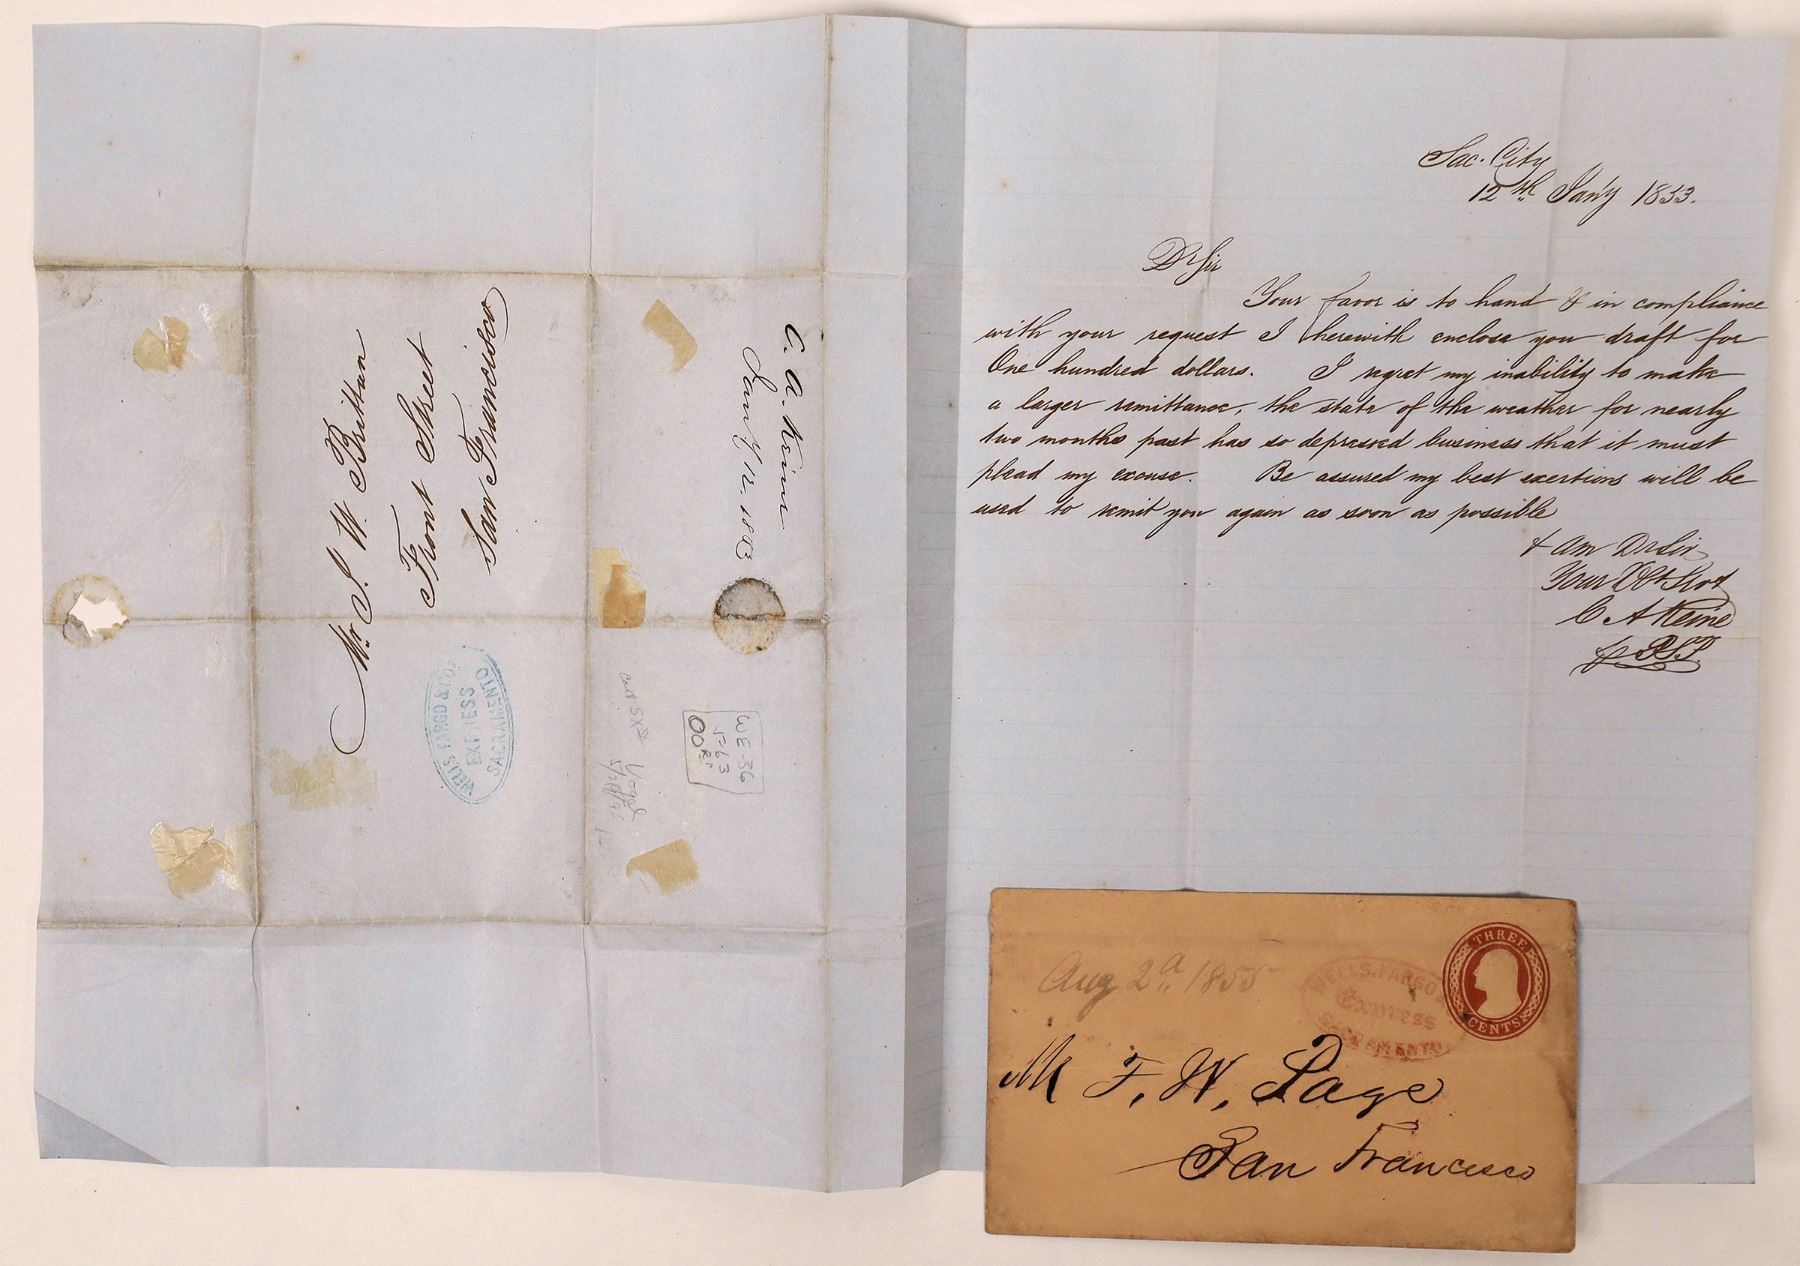 Mr. J. W. Brittan
Front Street
San Francisco
WELLS FARGO & CO.
EXPRESS
SACRAMENTO
C. A. Keine
Jany 12. 1853
WE-36
5-63
00
Vogel
Sac. City
12th Jan'y 1853.
Dr Sir
Your favor is to hand & in compliance
with your request I herewith enclose you draft for
One hundred dollars. I regret my inability to make
a larger remittance, the state of the weather for nearly
two months past has so depressed business that it must
plead my excuse. Be assured my best exertions will be
used to remit you again as soon as possible
& am Dr Sir
Your Obt Svt
C A Keine
THREE
CENTS
Aug 2d 1855
WELLS, FARGO &
Express
SACRAMENTO
Mr F. W. Page
San Francisco